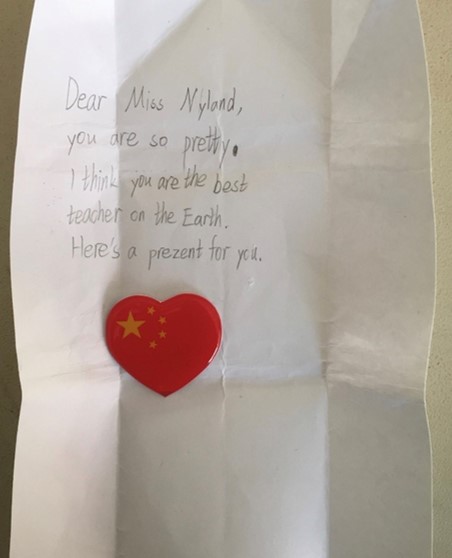 Dear Miss Nyland,
you are so pretty.
I think you are the best
teacher on the Earth.
Here's a prezent for you.